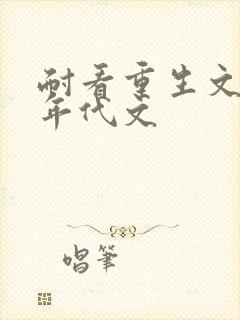 耐看重生文
年代文
唱筆